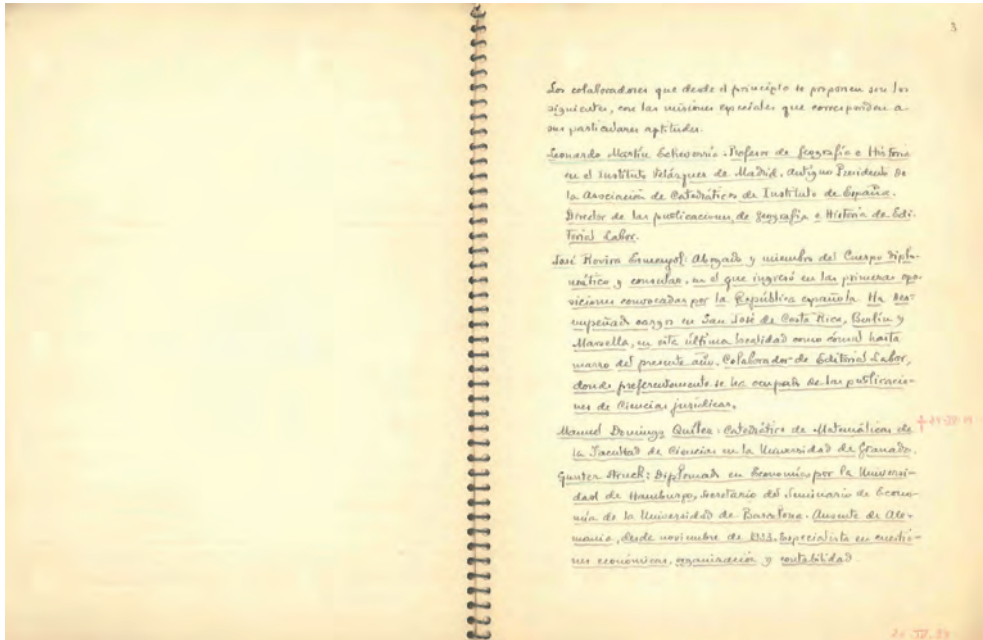 3
Los colaboradores que desde el principio se proponen son los
siguientes, con las misiones especiales que corresponden a
sus particulares aptitudes.
Leonardo Martín Echeverría. Profesor de Geografía e Historia
en el Instituto Velázquez de Madrid. Antiguo Presidente de
la Asociación de Catedráticos de Instituto de España.
Director de las publicaciones de Geografía e Historia de Edi-
torial Labor.
José Rovira Ermengol: Abogado y miembro del Cuerpo diplo-
mático y consular, en el que ingresó en las primeras opo-
siciones convocadas por la República española. Ha des-
empeñado cargos en San José de Costa Rica, Berlín y
Marsella, en esta última localidad como cónsul hasta
marzo del presente año. Colaborador de Editorial Labor,
donde preferentemente se ha ocupado de las publicacio-
nes de Ciencias jurídicas.
Manuel Domingo Quílez: Catedrático de Matemáticas de
la Facultad de Ciencias en la Universidad de Granada.
Gunter Struck: Diplomado en Economía por la Universi-
dad de Hamburgo, Secretario del Seminario de Econo-
mía de la Universidad de Barcelona. Ausente de Ale-
mania, desde noviembre de 1933. Especialista en cuestio-
nes económicas, organización y contabilidad